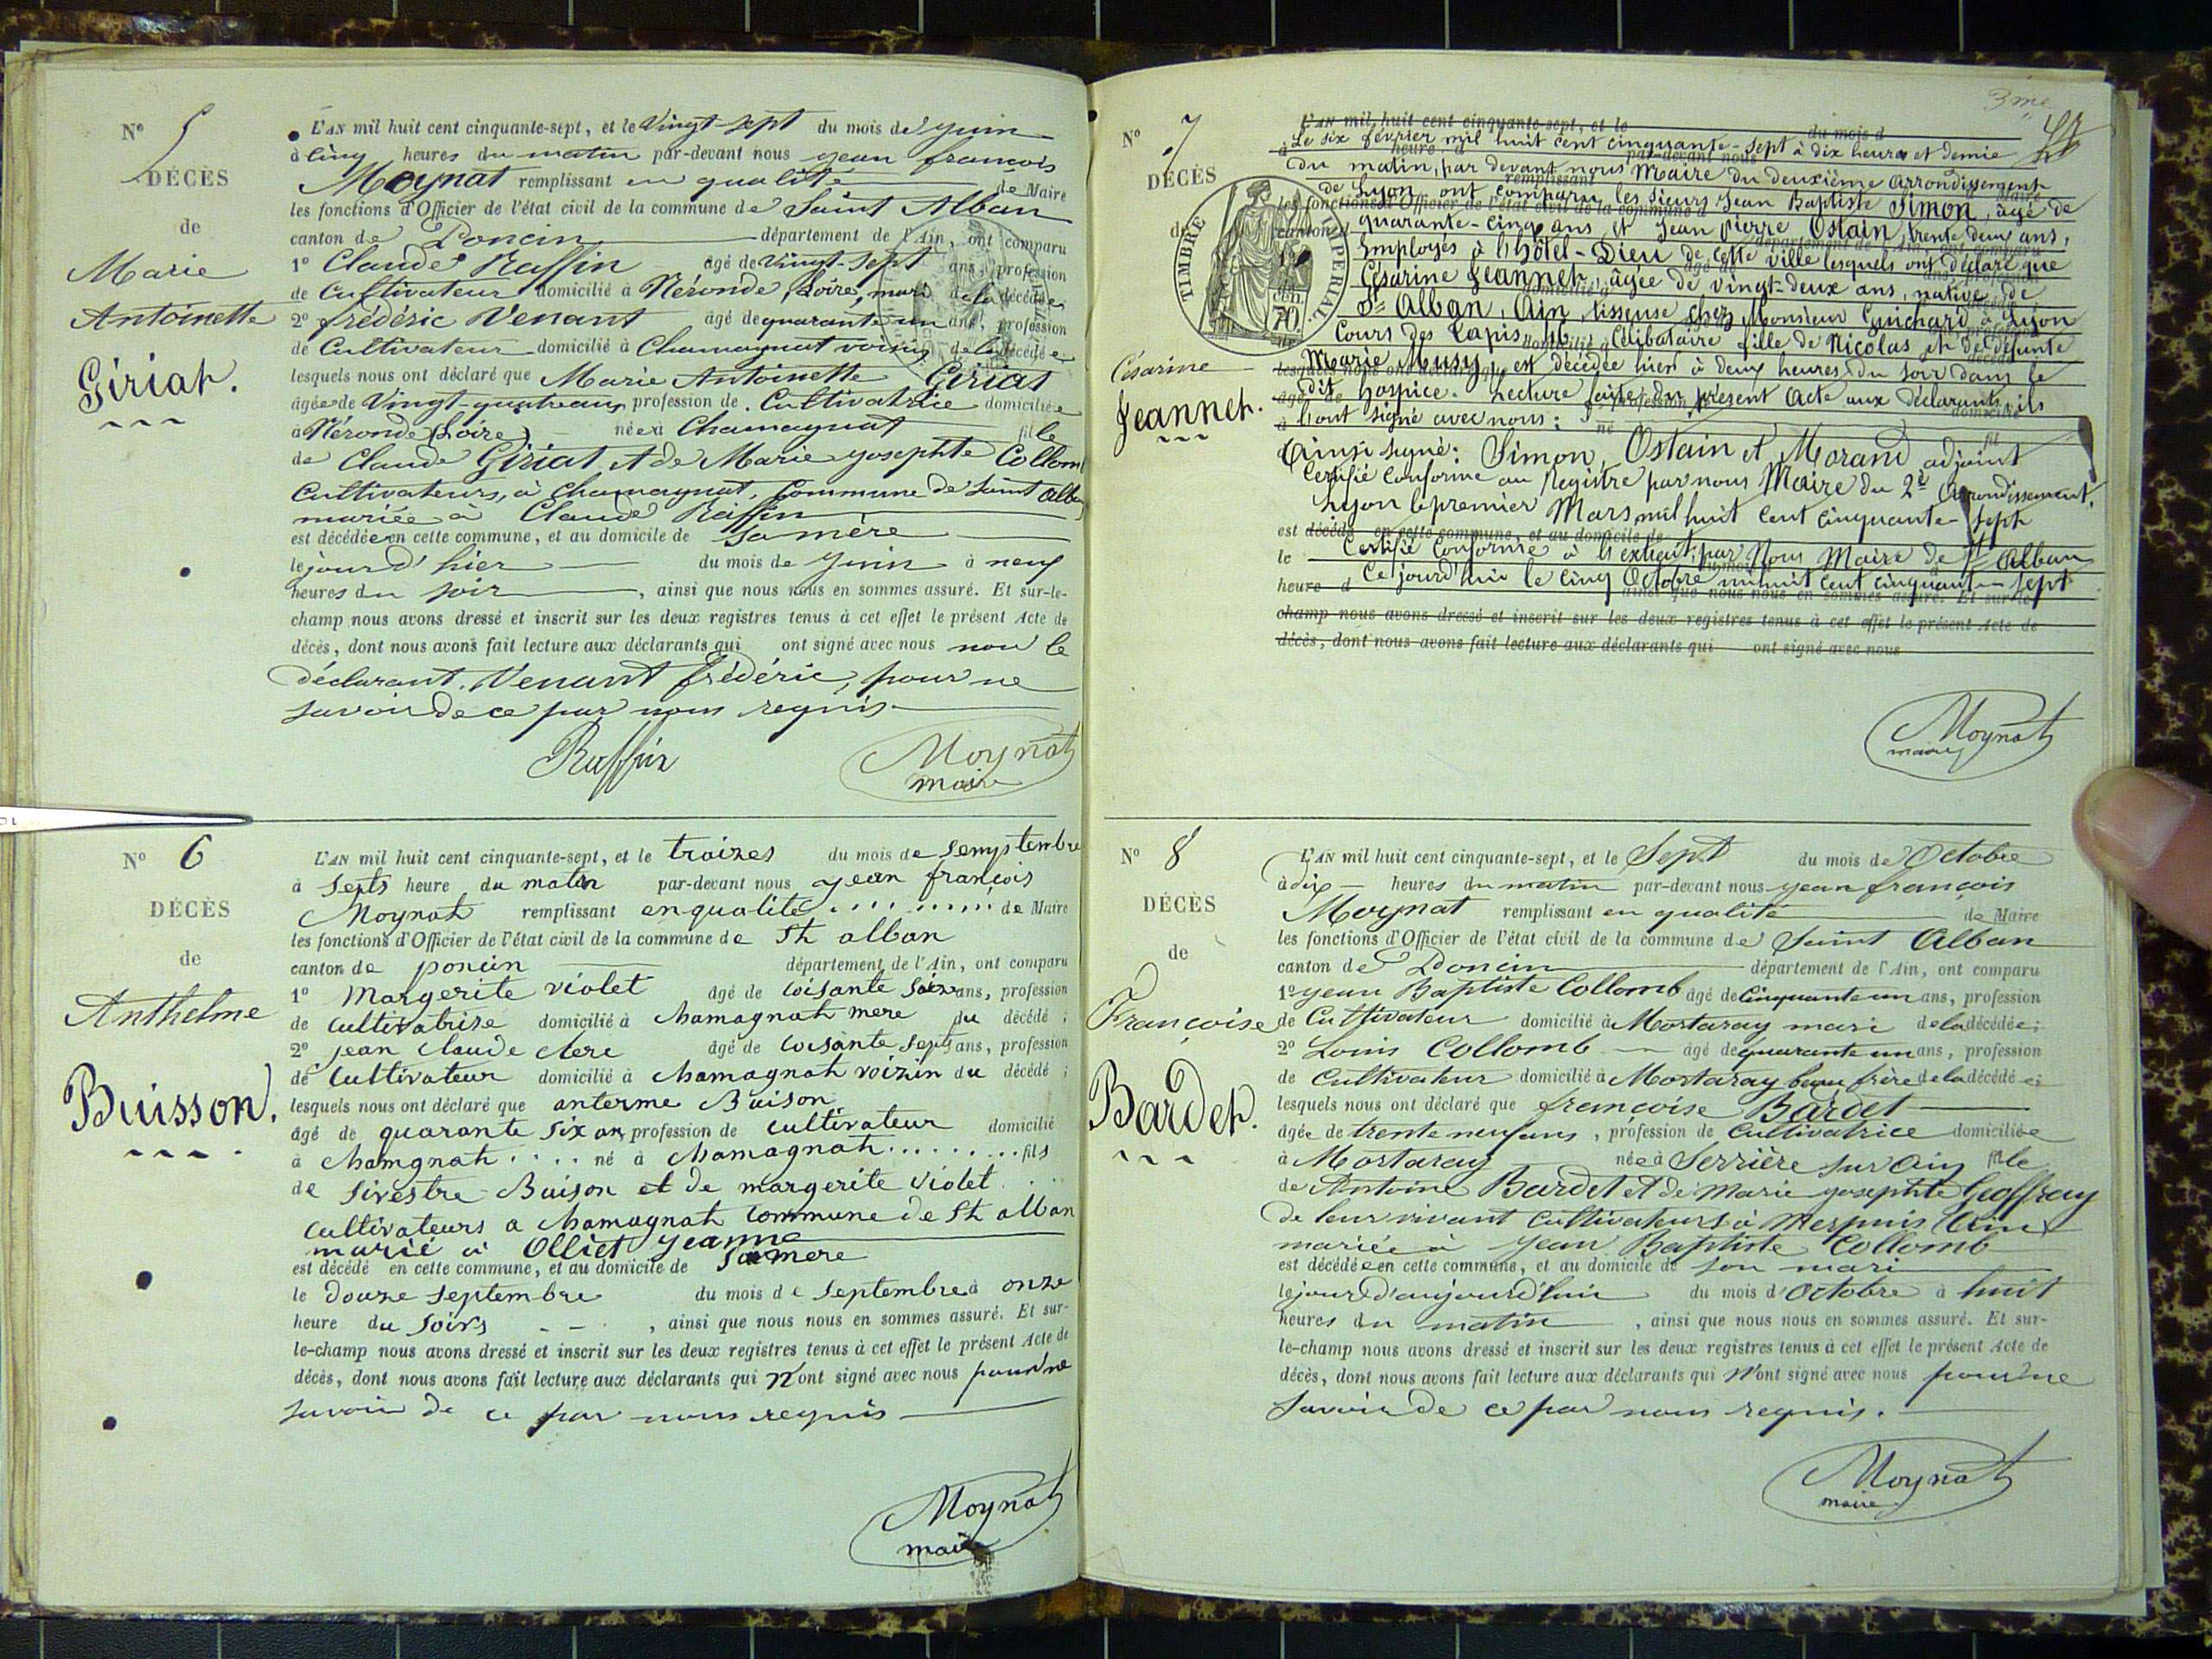 N° 5
DÉCÈS
de
Marie
Antoinette
Giriat.
L'AN mil huit cent cinquante-sept, et le Vingt-sept du mois de juin
à cinq heures du matin par-devant nous jean francois
Moynat remplissant en qualité de Maire
les fonctions d'Officier de l'état civil de la commune de Saint Alban
canton de Poncin département de l'Ain, ont comparu
1° Claude Raffin âgé de Vingt-sept ans, profession
de Cultivateur domicilié à Néronde, Loire, mari de la décédée;
2° frédéric Venant âgé de quarante un ans, profession
de Cultivateur domicilié à Chamagnat voisin de la décédée
lesquels nous ont déclaré que Marie Antoinette Giriat
âgée de Vingt-quatre ans, profession de Cultivatrice domiciliée
à Néronde (Loire) née à Chamagnat fille
de Claude Giriat et de Marie josephte Collom
Cultivateurs, à Chamagnat, Commune de Saint Alban
mariée à Claude Raffin
est décédée en cette commune, et au domicile de sa mère
le jour d'hier du mois de juin à neuf
heures du soir, ainsi que nous nous en sommes assuré. Et sur-le-
champ nous avons dressé et inscrit sur les deux registres tenus à cet effet le présent Acte de
décès, dont nous avons fait lecture aux déclarants qui ont signé avec nous non le
déclarant. Venant frédéric, pour ne
savoir de ce par nous requis
Raffin Moynat
maire
N° 6
DÉCÈS
de
Anthelme
Buisson.
L'AN mil huit cent cinquante-sept, et le troizes du mois de semptembre
à septs heure du matin par-devant nous jean françois
Moynat remplissant en qualité de Maire
les fonctions d'Officier de l'état civil de la commune de St alban
canton de poncin département de l'Ain, ont comparu
1° Margerite violet âgé de soisante ans, profession
de cultivatrise domicilié à chamagnat mere du décédé;
2° jean claude clerc âgé de soisante sept ans, profession
de cultivateur domicilié à chamagnat voizin du décédé;
lesquels nous ont déclaré que anterme Buison
âgé de quarante six an, profession de cultivateur domicilié
à chamgnat né à chamagnat fils
de sivestre Buison et de margerite violet
cultivateurs a chamagnat commune de St alban
marié à Olliet jeanne
est décédé en cette commune, et au domicile de sa mere
le douze septembre du mois de septembre à onze
heure du soirs, ainsi que nous nous en sommes assuré. Et sur-
le-champ nous avons dressé et inscrit sur les deux registres tenus à cet effet le présent Acte de
décès, dont nous avons fait lecture aux déclarants qui n'ont signé avec nous pour ne
savoir de ce par nous requis
Moynat
maire
3me
N° 7
DÉCÈS
de
TIMBRE IMPERIAL
70
Césarine
Jeannet.
L'AN mil huit cent cinquante-sept, et le du mois d
Le six février mil huit cent cinquante-sept à dix heures et demie
du matin, par devant nous Maire du deuxième Arrondissement
de Lyon ont comparu les sieurs Jean Baptiste Simon, âgé de
quarante-cinq ans et Jean pierre Ostain, trente deux ans,
Employés à l'Hôtel-Dieu de cette ville lesquels ont déclaré que
Césarine Jeannet, âgée de vingt-deux ans, native de
St Alban, Ain, tisseuse chez Monsieur Guichard à Lyon
Cours des Tapis 16, Célibataire fille de Nicolas et de défunte
Marie Musy, est décédée hier à deux heures du soir dans le
dit hospice. Lecture faite du présent Acte aux déclarants, ils
l'ont signé avec nous:
Ainsi signé: Simon, Ostain et Morand adjoint
Certifié Conforme au Registre par nous Maire du 2e Arrondissement.
Lyon le premier Mars mil huit cent cinquante-sept
est décédé en cette commune, et au domicile de
Certifié Conforme à l'extrait, par Nous Maire de St Alban
Ce jourd'hui le cinq Octobre mil huit cent cinquante-sept
champ nous avons dressé et inscrit sur les deux registres tenus à cet effet le présent Acte de
décès, dont nous avons fait lecture aux déclarants qui ont signé avec nous
Moynat
maire
N° 8
DÉCÈS
de
Françoise
Bardet.
L'AN mil huit cent cinquante-sept, et le Sept du mois de Octobre
à dix heures du matin par-devant nous jean françois
Moynat remplissant en qualité de Maire
les fonctions d'Officier de l'état civil de la commune de Saint Alban
canton de Poncin département de l'Ain, ont comparu
1° jean Baptiste Collomb âgé de cinquante un ans, profession
de Cultivateur domicilié à Mortaray mari de la décédée;
2° Louis Collomb âgé de quarante un ans, profession
de Cultivateur domicilié à Mortaray beau frère de la décédée;
lesquels nous ont déclaré que françoise Bardet
âgée de trente neuf ans, profession de Cultivatrice domiciliée
à Mortaray née à Serrière sur Ain fille
de Antoine Bardet et de Marie josephte Geoffray
de leur vivant Cultivateurs à Merpuis (Ain)
mariée à jean Baptiste Collomb
est décédée en cette commune, et au domicile de son mari
le jour d'aujourd'hui du mois d'Octobre à huit
heures du matin, ainsi que nous nous en sommes assuré. Et sur-
le-champ nous avons dressé et inscrit sur les deux registres tenus à cet effet le présent Acte de
décès, dont nous avons fait lecture aux déclarants qui n'ont signé avec nous pour ne
savoir de ce par nous requis.
Moynat
maire